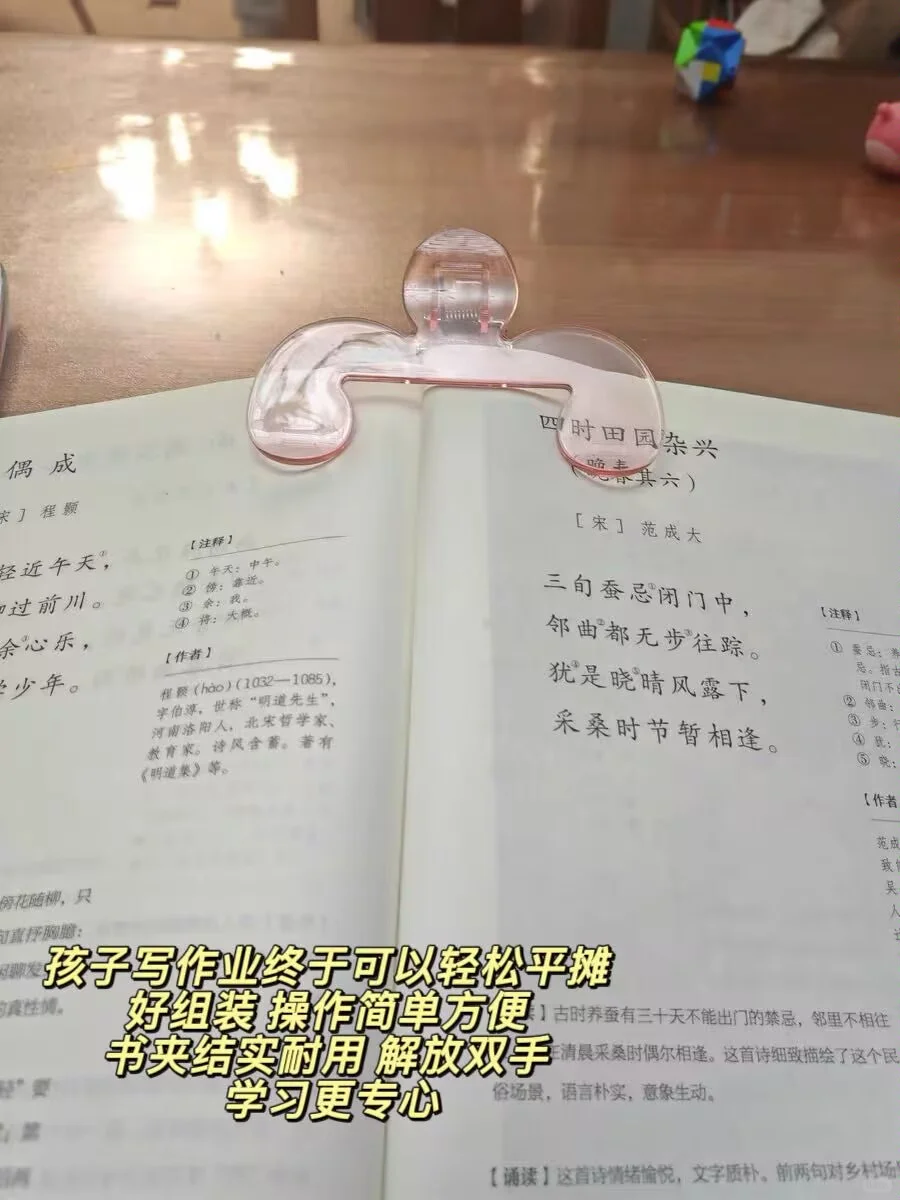 偶成
宋］程颢
轻近午天①，
过前川。
余③心乐，
少年。
【注释】
① 午天：中午。
② 傍：靠近。
③ 余：我。
④ 将：大概。
【作者】
程颢（hào）（1032—1085），
字伯淳，世称“明道先生”，
河南洛阳人，北宋哲学家、
教育家。诗风含蓄。著有
《明道集》等。
傍花随柳，只
直抒胸臆：
闲聊发
的真性情。
轻”要
第
四时田园杂兴
（晚春其六）
［宋］范成大
三旬蚕忌①闭门中，
邻曲②都无步③往踪。
犹④是晓⑤晴风露下，
采桑时节暂相逢。
【注释】
① 蚕忌：养
忌。指古
闭门不
② 邻曲：
③ 步：行
④ 犹：
⑤ 晓：
【作者
范成
致
吴
人
】古时养蚕有三十天不能出门的禁忌，邻里不相往
在清晨采桑时偶尔相逢。这首诗细致描绘了这个民
俗场景，语言朴实，意象生动。
【诵读】这首诗情绪愉悦，文字质朴。前两句对乡村场
孩子写作业终于可以轻松平摊
好组装 操作简单方便
书夹结实耐用 解放双手
学习更专心